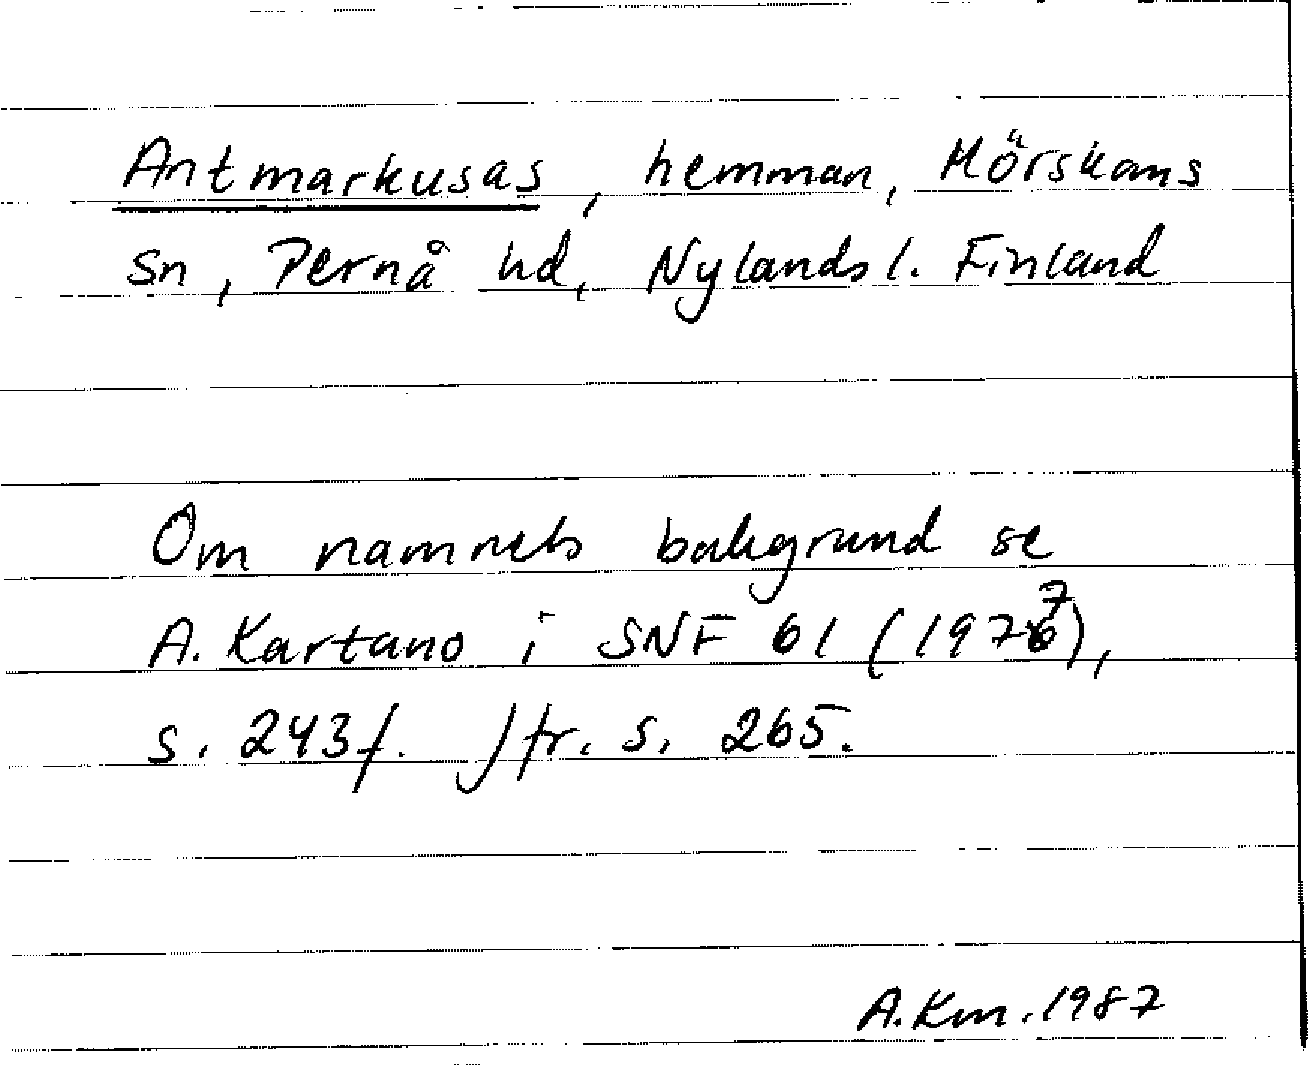 Antmarkusas, hemman, Mörskoms
sn, Pernå hd, Nylands l. Finland
Om namnets bakgrund se
A. Kartano i SNF 61 (1977),
s. 243f. Jfr. s. 265.
A.Km.1987